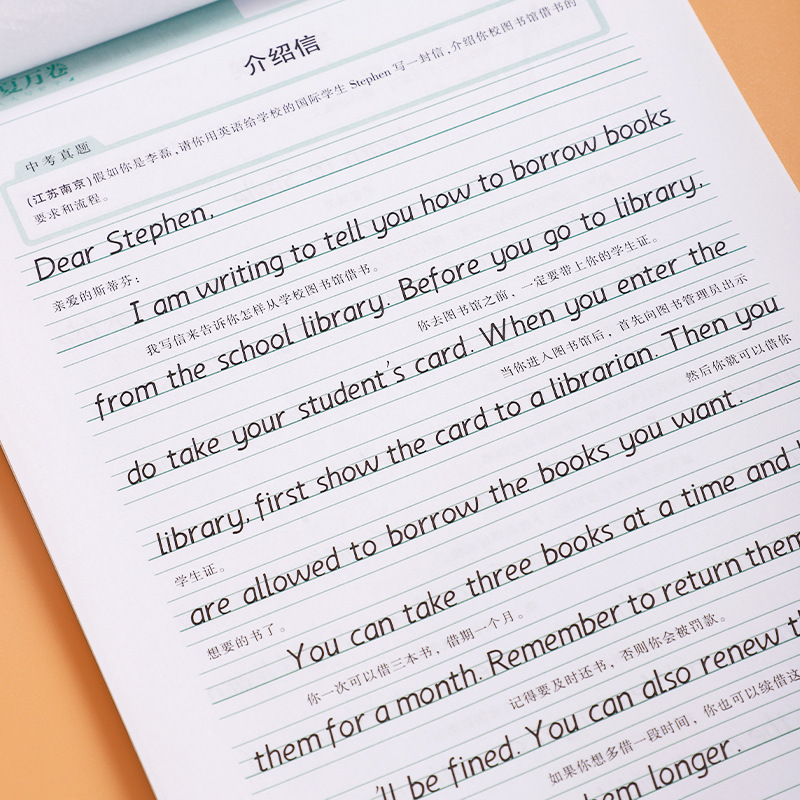 夏万卷
介绍信
中考真题
(江苏南京)假如你是李磊,请你用英语给学校的国际学生 Stephen 写一封信,介绍你校图书馆借书的
要求和流程。
Dear Stephen,
亲爱的斯蒂芬：
I am writing to tell you how to borrow books
我写信来告诉你怎样从学校图书馆借书。
from the school library. Before you go to library,
你去图书馆之前，一定要带上你的学生证。
do take your student's card. When you enter the
当你进入图书馆后，首先向图书管理员出示
library, first show the card to a librarian. Then you
学生证。
然后你就可以借你
are allowed to borrow the books you want.
想要的书了。
You can take three books at a time and
你一次可以借三本书，借期一个月。
them for a month. Remember to return them
记得要及时还书，否则你会被罚款。
'll be fined. You can also renew
如果你想多借一段时间，你也可以续借这
them longer.